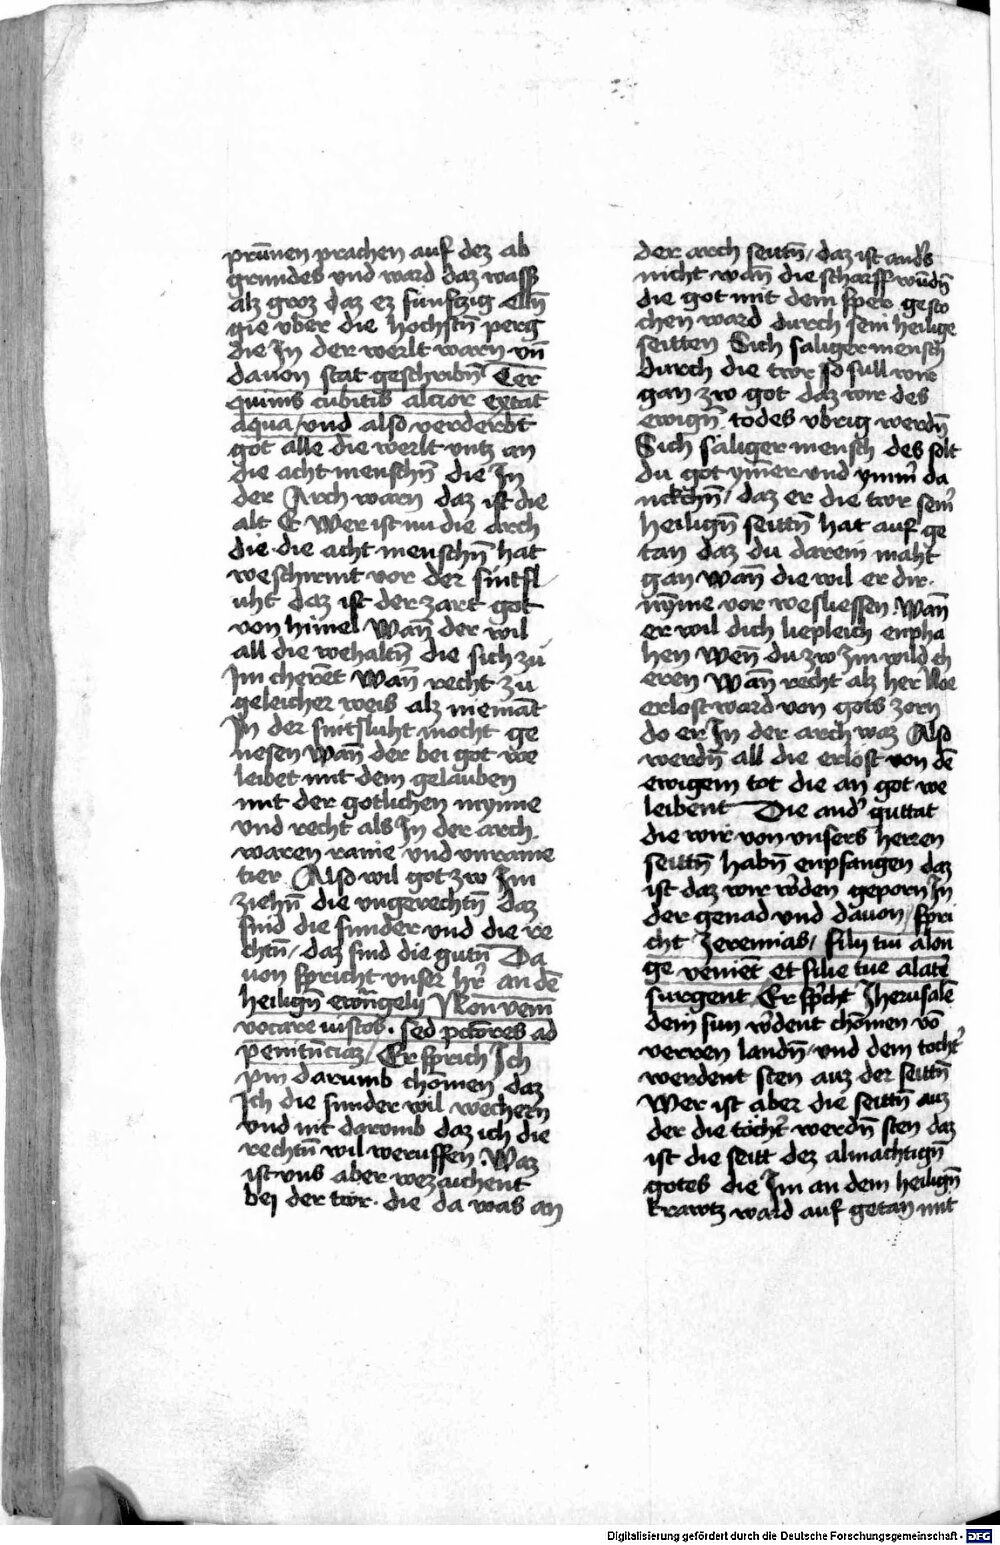 prūnen prachen auf dez ab
grundes vnd ward daz wasß
alz groz daz ez fünfczig ellñ
gie vber die hochstñ perg
die Jn der werlt warn vñ
dauon stat geschribñ Ter
quinis cubitis alcior extat
aqua / vnd also verderbt
got alle die werlt vntz an
die acht menschñ die Jn
der Arch warn daz ist die
alt E Wer ist nu die Arch
die die acht menschñ hat
weschirmt vor der sintfl
uht daz ist der zart got
von himel Wañ der wil
all die wehaltñ die sich zü
Jm cherēt Wañ recht zu
geleicher weis alz niemāt
Jn der sintfluht mocht ge
nesen wañ der bei got we
leibet mit dem gelauben
mit der gotlichen mynne
vnd recht als Jn der arch
waren raine vnd vnraine
tier Also wil got zw Jm
ziehñ die vngerechtñ daz
sind die sunder vnd die re
chtñ / daz sind die gutñ Da
uon spricht vnser hr̄ an dē
heiligñ ewāngelij Non veni
vocare iustos . sed pctōres ad
penitūciaz / Er sprich Jch
pin darumb chömen daz
Jch die sunder wil wechern
vnd nit darumb daz ich die
rechtñ wil weruffen . Waz
ist vns aber wezaichent
bei der twr . die da was an
der arch seittñ / daz ist and's
nicht wañ die scharff wūdñ
die got mit dem sper gesto
chen ward durch sein heilige
seitten Sich saliger mensch
durch die twr so sull wir
gan zw got daz wir des
ewigñ todes vbrig werdñ
Sich sáliger mensch des solt
du got ymer vnd ymm' da
nckchñ / daz er die twr sein'
heiligñ seittñ hat auf ge
tan daz du darein maht
gan wañ die wil er dir
nȳme vor wesliessen . Wañ
er wil dich liepleich enpha
hen wen̄ du zw Jm wild ch
eren Wañ recht alz her Noe
erlost ward von gots zorn
do er Jn der arch waz Also
werdñ all die erlöst von dē
ewigem tot die an got we
leibent Die and' guttat
die wir von vnsers herren
seittñ habñ enpfangen daz
ist daz wir w'den geporn Jn
der genad vnd dauon / spri
cht Jeremias / filij tui alon
ge veniēt et filie tue alatē
surgent Er sp'cht Jherusalē
dem sun w'dent chömen vō
verren landñ / vnd dem tocht'
werdent sten auz der seittñ
Wer ist aber die seittñ auz
der die töcht' werdñ sten daz
ist die seitt dez almachtigñ
gotes die Jm an dem heiligñ
krawtz ward auf getan mit
Digitalisierung gefördert durch die Deutsche Forschungsgemeinschaft - DFG